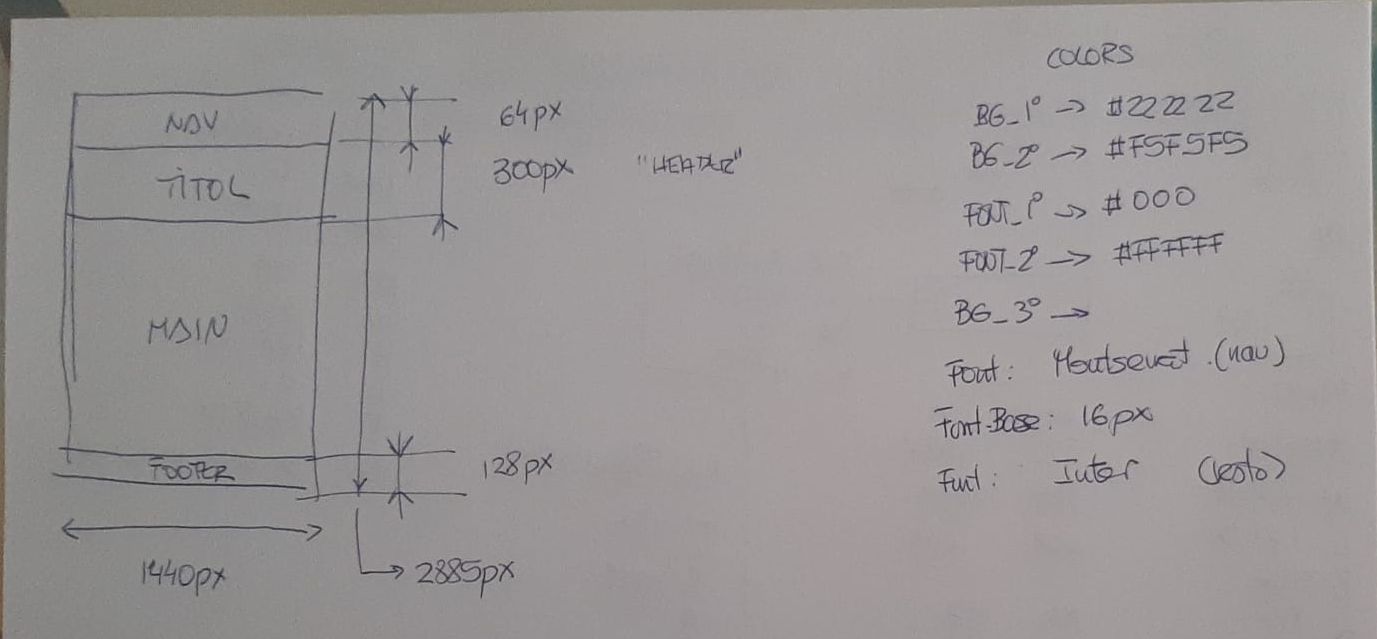 NAV
TÍTOL
MAIN
FOOTER
1440px
64px
300px "HEADER"
128px
2885px
COLORS
BG_1º → #222222
BG_2º → #F5F5F5
FONT_1º → #000
FONT_2º → #FFFFFF
BG_3º →
Font: Montserrat (nav)
Font-Base: 16px
Font: Inter (resto)